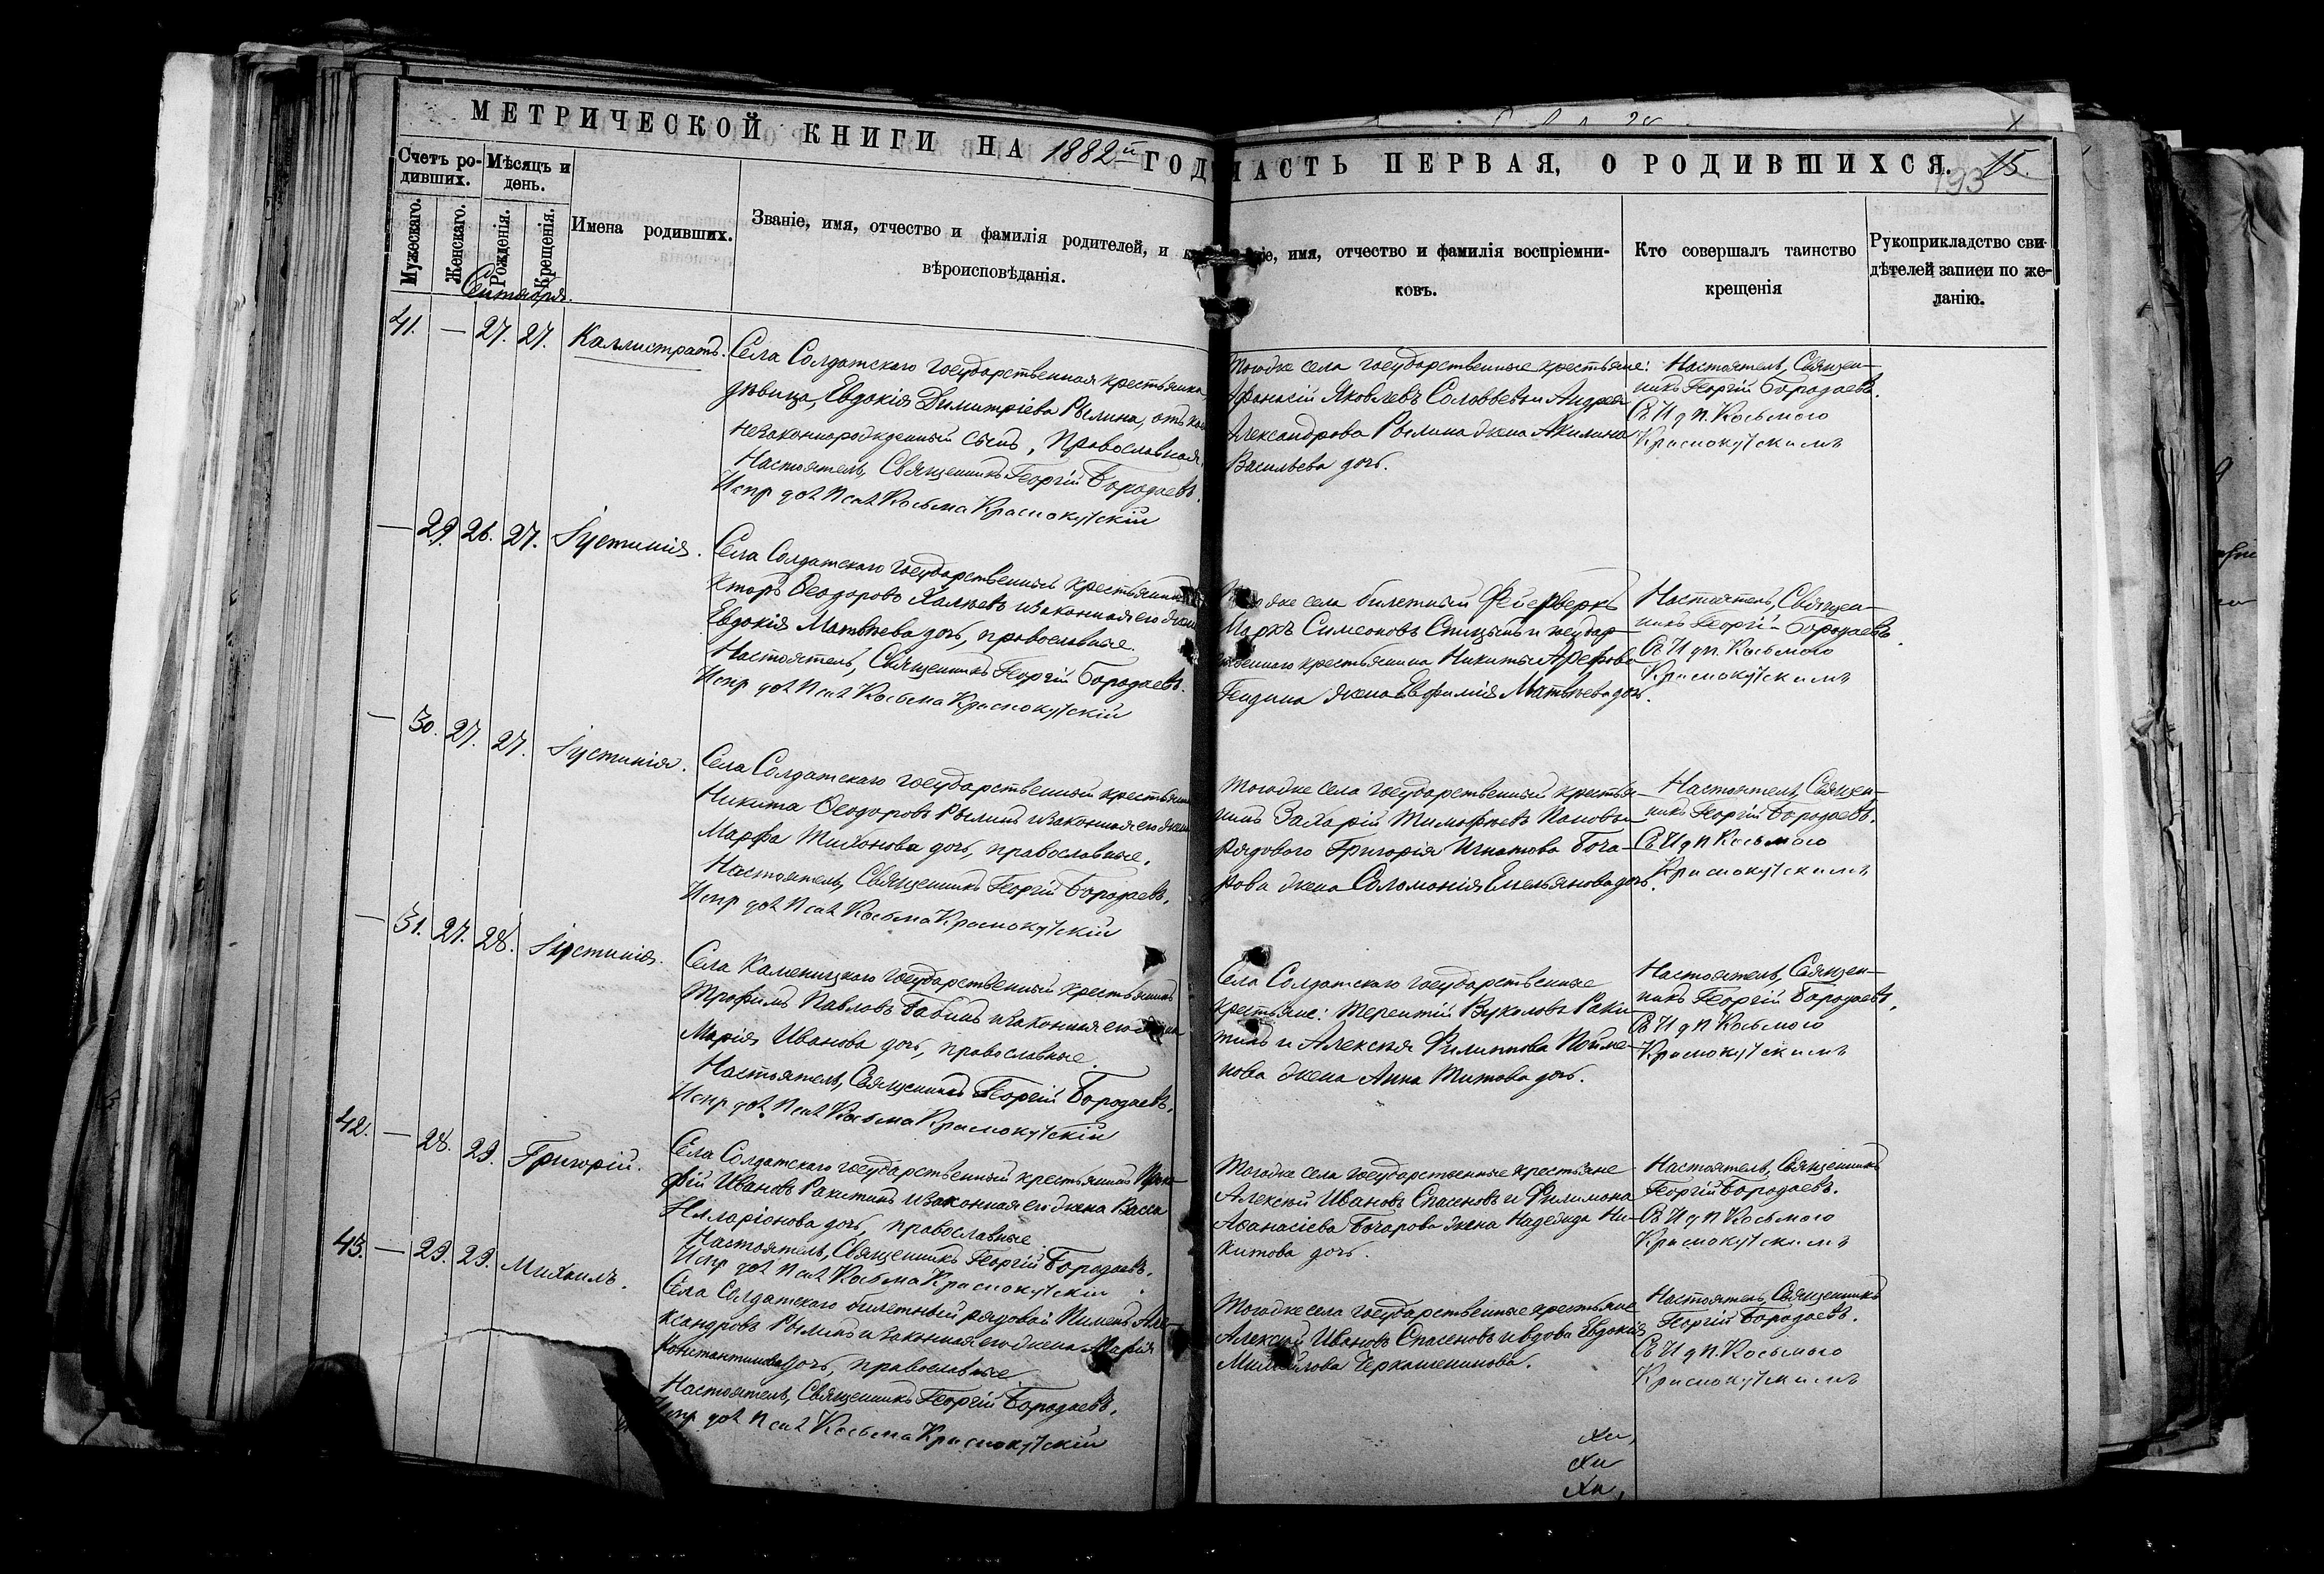 МЕТРИЧЕСКОЙ КНИГИ НА 1882й ГОД
Счетъ ро-
дившихъ.
Мѣсяцъ и
день.
Мужескаго.
Женскаго.
Рожденія.
Крещенія.
Имена родившихъ.
Званіе, имя, отчество и фамилія родителей, и к
вѣроисповѣданія.
Сентября.
41. — 27. 27. Каллистратъ.
Села Солдатскаго государственная крестьянка,
дѣвица, Евдокія Димитріева Рылина, отъ ко
незаконнорожденный сынъ, православная.
Настоятель, Священникъ Георгій Бородаевъ.
Испр дол Псал Косьма Краснокутскій
— 29. 26. 27. Іустинія.
Села Солдатскаго государственный крестьянинъ
Ѳеодоровъ Халѣевъ и законная его жена
Евдокія Матвѣева дочь, православные.
Настоятель, Священникъ Георгій Бородаевъ.
Испр дол Псал Косьма Краснокутскій
— 30. 27. 27. Іустинія.
Села Солдатскаго государственный крестьянинъ
Никита Ѳеодоровъ Рылинъ и законная его жена
Марфа Тихонова дочь, православные.
Настоятель, Священникъ Георгій Бородаевъ.
Испр дол Псал Косьма Краснокутскій
— 31. 27. 28. Іустинія.
Села Каменицкаго государственный крестьянинъ
Трофимъ Павловъ Бабинъ и законная его жена
Марія Иванова дочь, православные.
Настоятель, Священникъ Георгій Бородаевъ.
Испр дол Псал Косьма Краснокутскій
42. — 28. 29. Григорій.
Села Солдатскаго государственный крестьянинъ Проко-
фій Ивановъ Ракитинъ и законная его жена Васса
Илларіонова дочь, православные
Настоятель, Священникъ Георгій Бородаевъ.
Испр дол Псал Косьма Краснокутскій
43. — 29. 29. Михаилъ.
Села Солдатскаго билетный рядовой Пименъ Але-
ксандровъ Рылинъ и законная его жена Марія
Константинова дочь, православные.
Настоятель, Священникъ Георгій Бородаевъ.
Испр дол Псал Косьма Краснокутскій
ЧАСТЬ ПЕРВАЯ, О РОДИВШИХСЯ. 15.
193
іе, имя, отчество и фамилія воспріемни-
ковъ.
Кто совершалъ таинство
крещенія
Рукоприкладство сви-
дѣтелей записи по же-
ланію.
Тогоже села государственные крестьяне:
Афанасій Яковлевъ Соловьевъ и Андрея
Александрова Рылина жена Акилина
Васильева дочь.
Настоятель, Священ-
никъ Георгій Бородаевъ.
Съ И д п. Косьмою
Краснокутскимъ
Тогоже села билетный Фейерверкъ
Маркъ Симеоновъ Спицынъ и государ-
ственнаго крестьянина Никиты Арефова
жена Евфимія Матвѣева дочь.
Настоятель, Священ-
никъ Георгій Бородаевъ.
Съ И дп. Косьмою
Краснокутскимъ
Тогоже села государственный крестья-
нинъ Захарій Тимофѣевъ Поповъ и
рядоваго Григорія Игнатова Боча-
рова жена Соломонія Емельянова дочь.
Настоятель, Священ-
никъ Георгій Бородаевъ.
Съ И д п Косьмою
Краснокутскимъ
Села Солдатскаго государственные
крестьяне: Терентій Вуколовъ Раки-
тинъ и Алексѣя Филиппова Пойме-
нова жена Анна Титова дочь.
Настоятель, Священ-
никъ Георгій Бородаевъ.
Съ И д п Косьмою
Краснокутскимъ
Тогоже села государственные крестьяне
Алексѣй Ивановъ Спасеновъ и Филимона
Аѳанасіева Бочарова жена Надежда Ни-
китова дочь.
Настоятель, Священникъ
Георгій Бородаевъ.
Съ И д п Косьмою
Краснокутскимъ
Тогоже села государственные крестьяне
Алексѣй Ивановъ Спасеновъ и вдова Евдокія
Михайлова Черкашенинова.
Настоятель, Священникъ
Георгій Бородаевъ.
Съ И д п. Косьмою
Краснокутскимъ